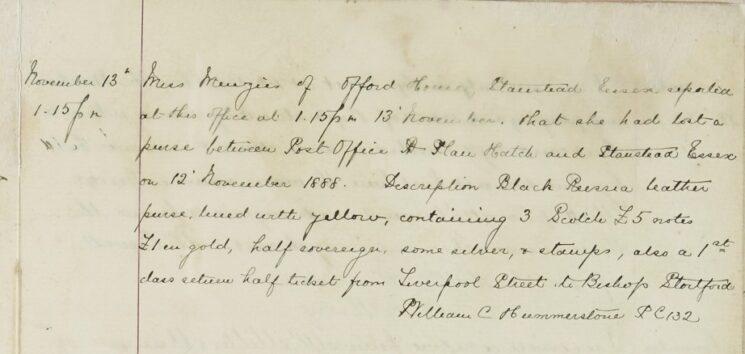 November 13th
1.15 pm
Miss Menzies of Offord House Stanstead Essex reported
at this office at 1.15 pm 13' November. that she had lost a
purse between Post Office & Plan Hatch and Stanstead Essex
on 12' November 1888. Description Black Russia leather
purse, lined with yellow, containing 3 Scotch £5 notes
£1 in gold, half sovereign, some silver, & stamps, also a 1st
class return half ticket from Liverpool Street to Bishop Stortford
William C Hummerstone P C 132